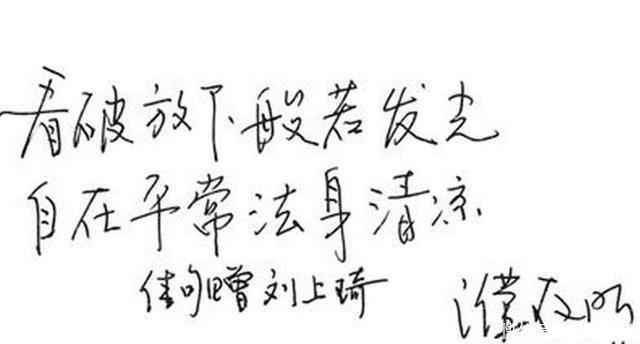 看破放下般若发光
自在平常法身清凉
佳句赠刘上琦
濮存昕